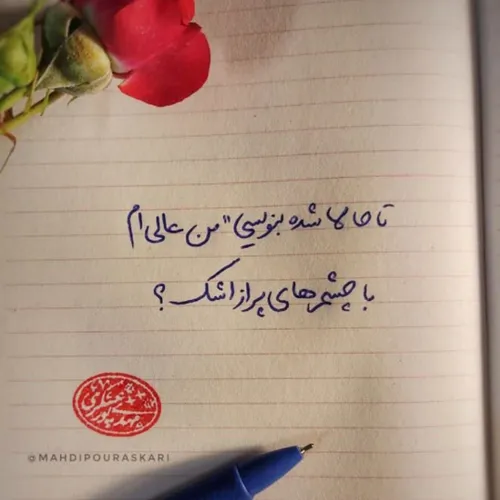 تا حالا شده بنویسی "من عالی ام
با چشم های پر از اشک ؟
مهدی پورعسکری
@MAHDIPOURASKARI